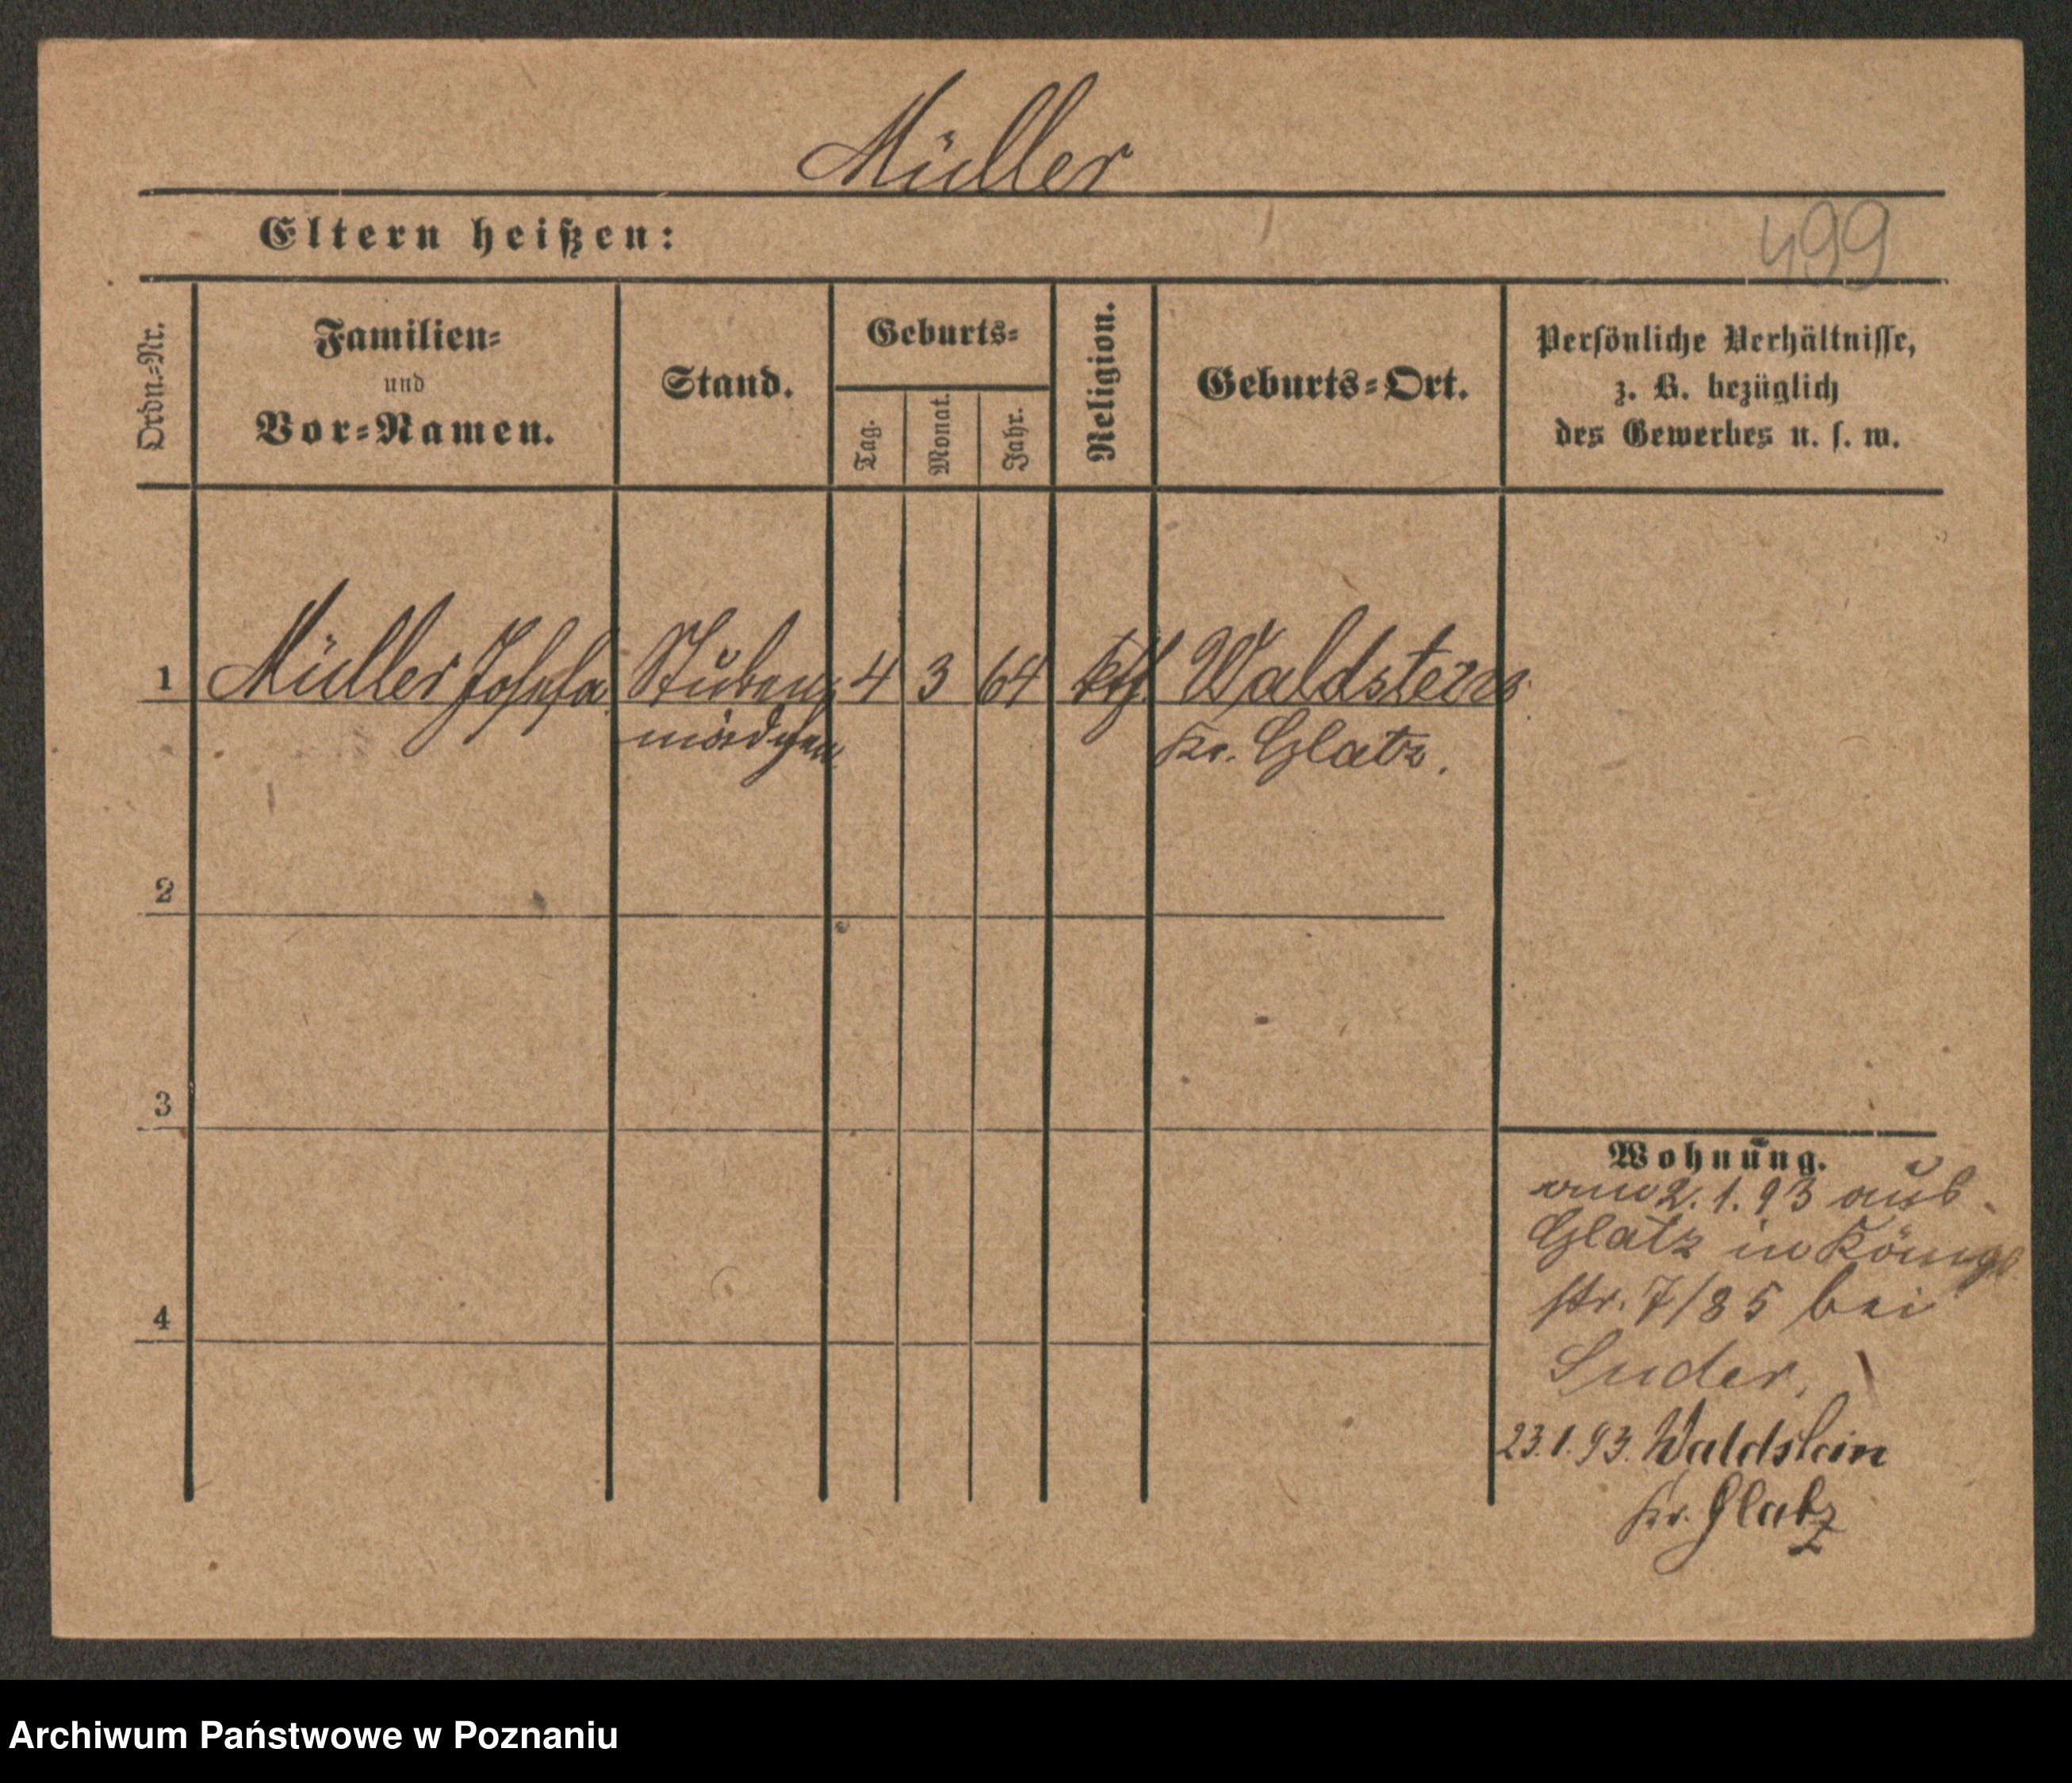 Müller
Eltern heißen:
499
Ordn.-Nr.
Familien-
und
Vor-Namen.
Stand.
Geburts-
Tag.
Monat.
Jahr.
Religion.
Geburts-Ort.
Persönliche Verhältnisse,
z. B. bezüglich
des Gewerbes u. s. w.
1 Müller Josefa Stuben- 4 3 64 kth. Waldstein
mädchen Kr. Glatz.
2
3
4
Wohnung.
2.1.93 aus
Glatz in Königs
str. 7/85 bei
Suder.
23.1.93. Waldstein
Kr. Glatz
Archiwum Państwowe w Poznaniu